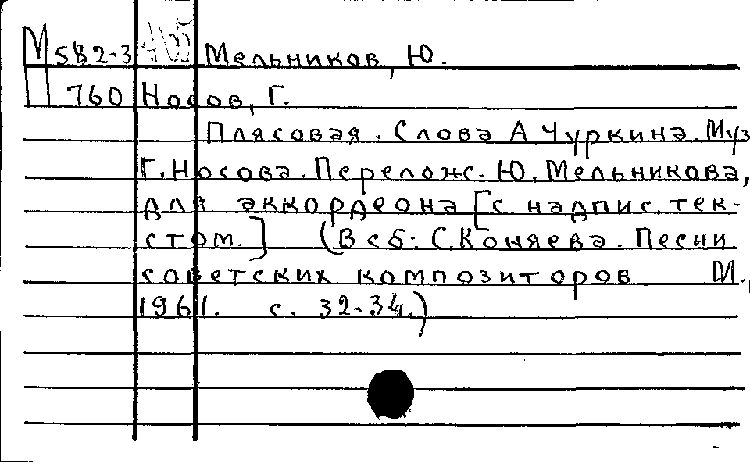 М 582-3 Мельников, Ю.
П 760 Носов, Г.
Плясовая. Слова А. Чуркина. Муз
Г. Носова. Перелож. Ю. Мельникова,
для аккордеона [с надпис. тек-
стом.] (В сб: С. Коняева. Песни
советских композиторов М.,
1961. с. 32-34.)